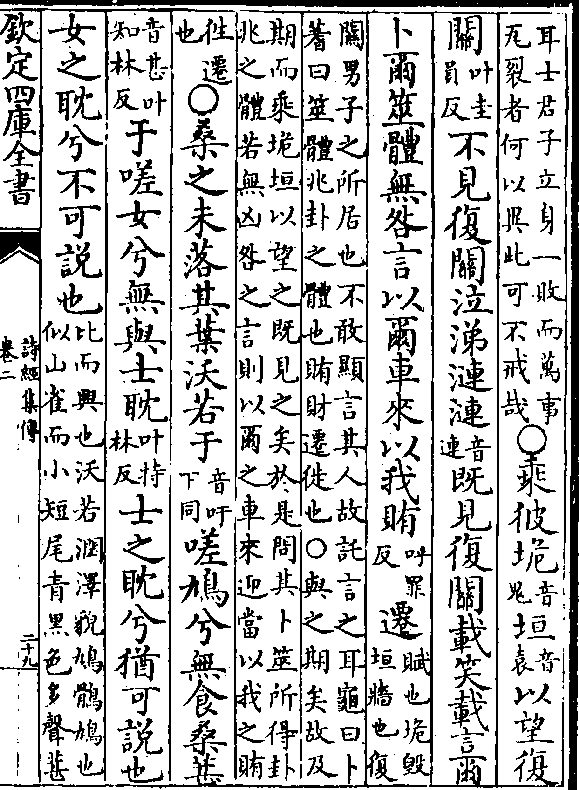 耳士君子立身一敗而萬事瓦裂者何以異此可不戒哉○乘彼垝音鬼垣音袁以望復
關叶圭員反不見復關泣涕漣漣音連既見復關載笑載言爾
卜爾筮體無咎言以爾車來以我賄呼罪反遷賦也垝毀垣牆也復
關男子之所居也不敢顯言其人故託言之耳龜曰卜
蓍曰筮體兆卦之體也賄財遷徙也○與之期矣故及
期而乘垝垣以望之既見之矣於是問其卜筮所得卦
兆之體若無凶咎之言則以爾之車來迎當以我之賄
往遷也○桑之未落其葉沃若于音吁下同嗟鳩兮無食桑葚
音甚叶知林反于嗟女兮無與士耽叶持林反士之耽兮猶可說也
女之耽兮不可說也比而興也沃若潤澤貌鳩鶻鳩也似山雀而小短尾青黑色多聲葚
欽定四庫全書
詩經集傳
卷二
二十九